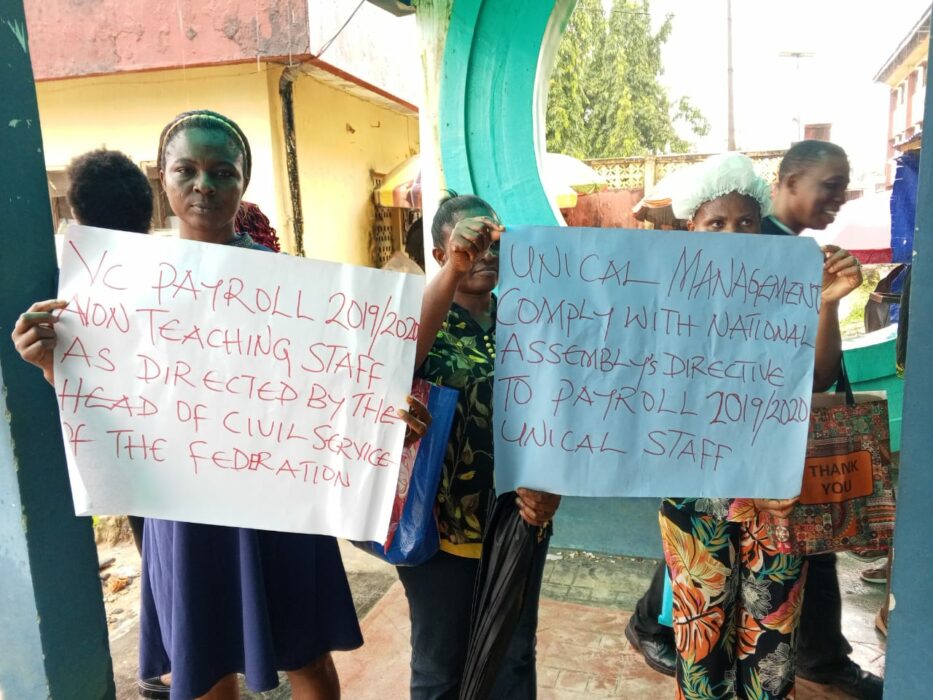 VC PAYROLL 2019/2020
NON TEACHING STAFF
AS DIRECTED BY THE
HEAD OF CIVIL SERVICE
OF THE FEDERATION
UNICAL MANAGEMENT
COMPLY WITH NATIONAL
ASSEMBLY'S DIRECTIVE
TO PAYROLL 2019/2020
UNICAL STAFF
THANK
YOU